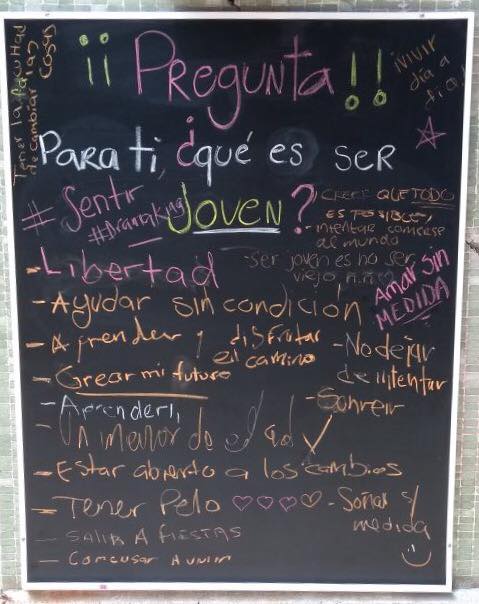 Tener la facultad
de cambiar las
cosas
¡¡ Pregunta !!
¡Vivir
día a
día!
Para ti, ¿qué es ser
Joven?
# Sentir
#Dramaking
Creer que todo
es posible,
intentar comerse
al mundo
- Libertad
- Ser joven es no ser
viejo
Amar sin
MEDIDA
- Ayudar sin condición
- Aprender y disfrutar
el camino
- No dejar
de intentar
- Crear mi futuro
- Sonreir
- Aprender
- Un menor de edad
- Estar abierto a los cambios
- Tener Pelo ♡♡♡♡
- Soñar s/
medida
:)
- SALIR A FIESTAS
- Comenzar a vivir